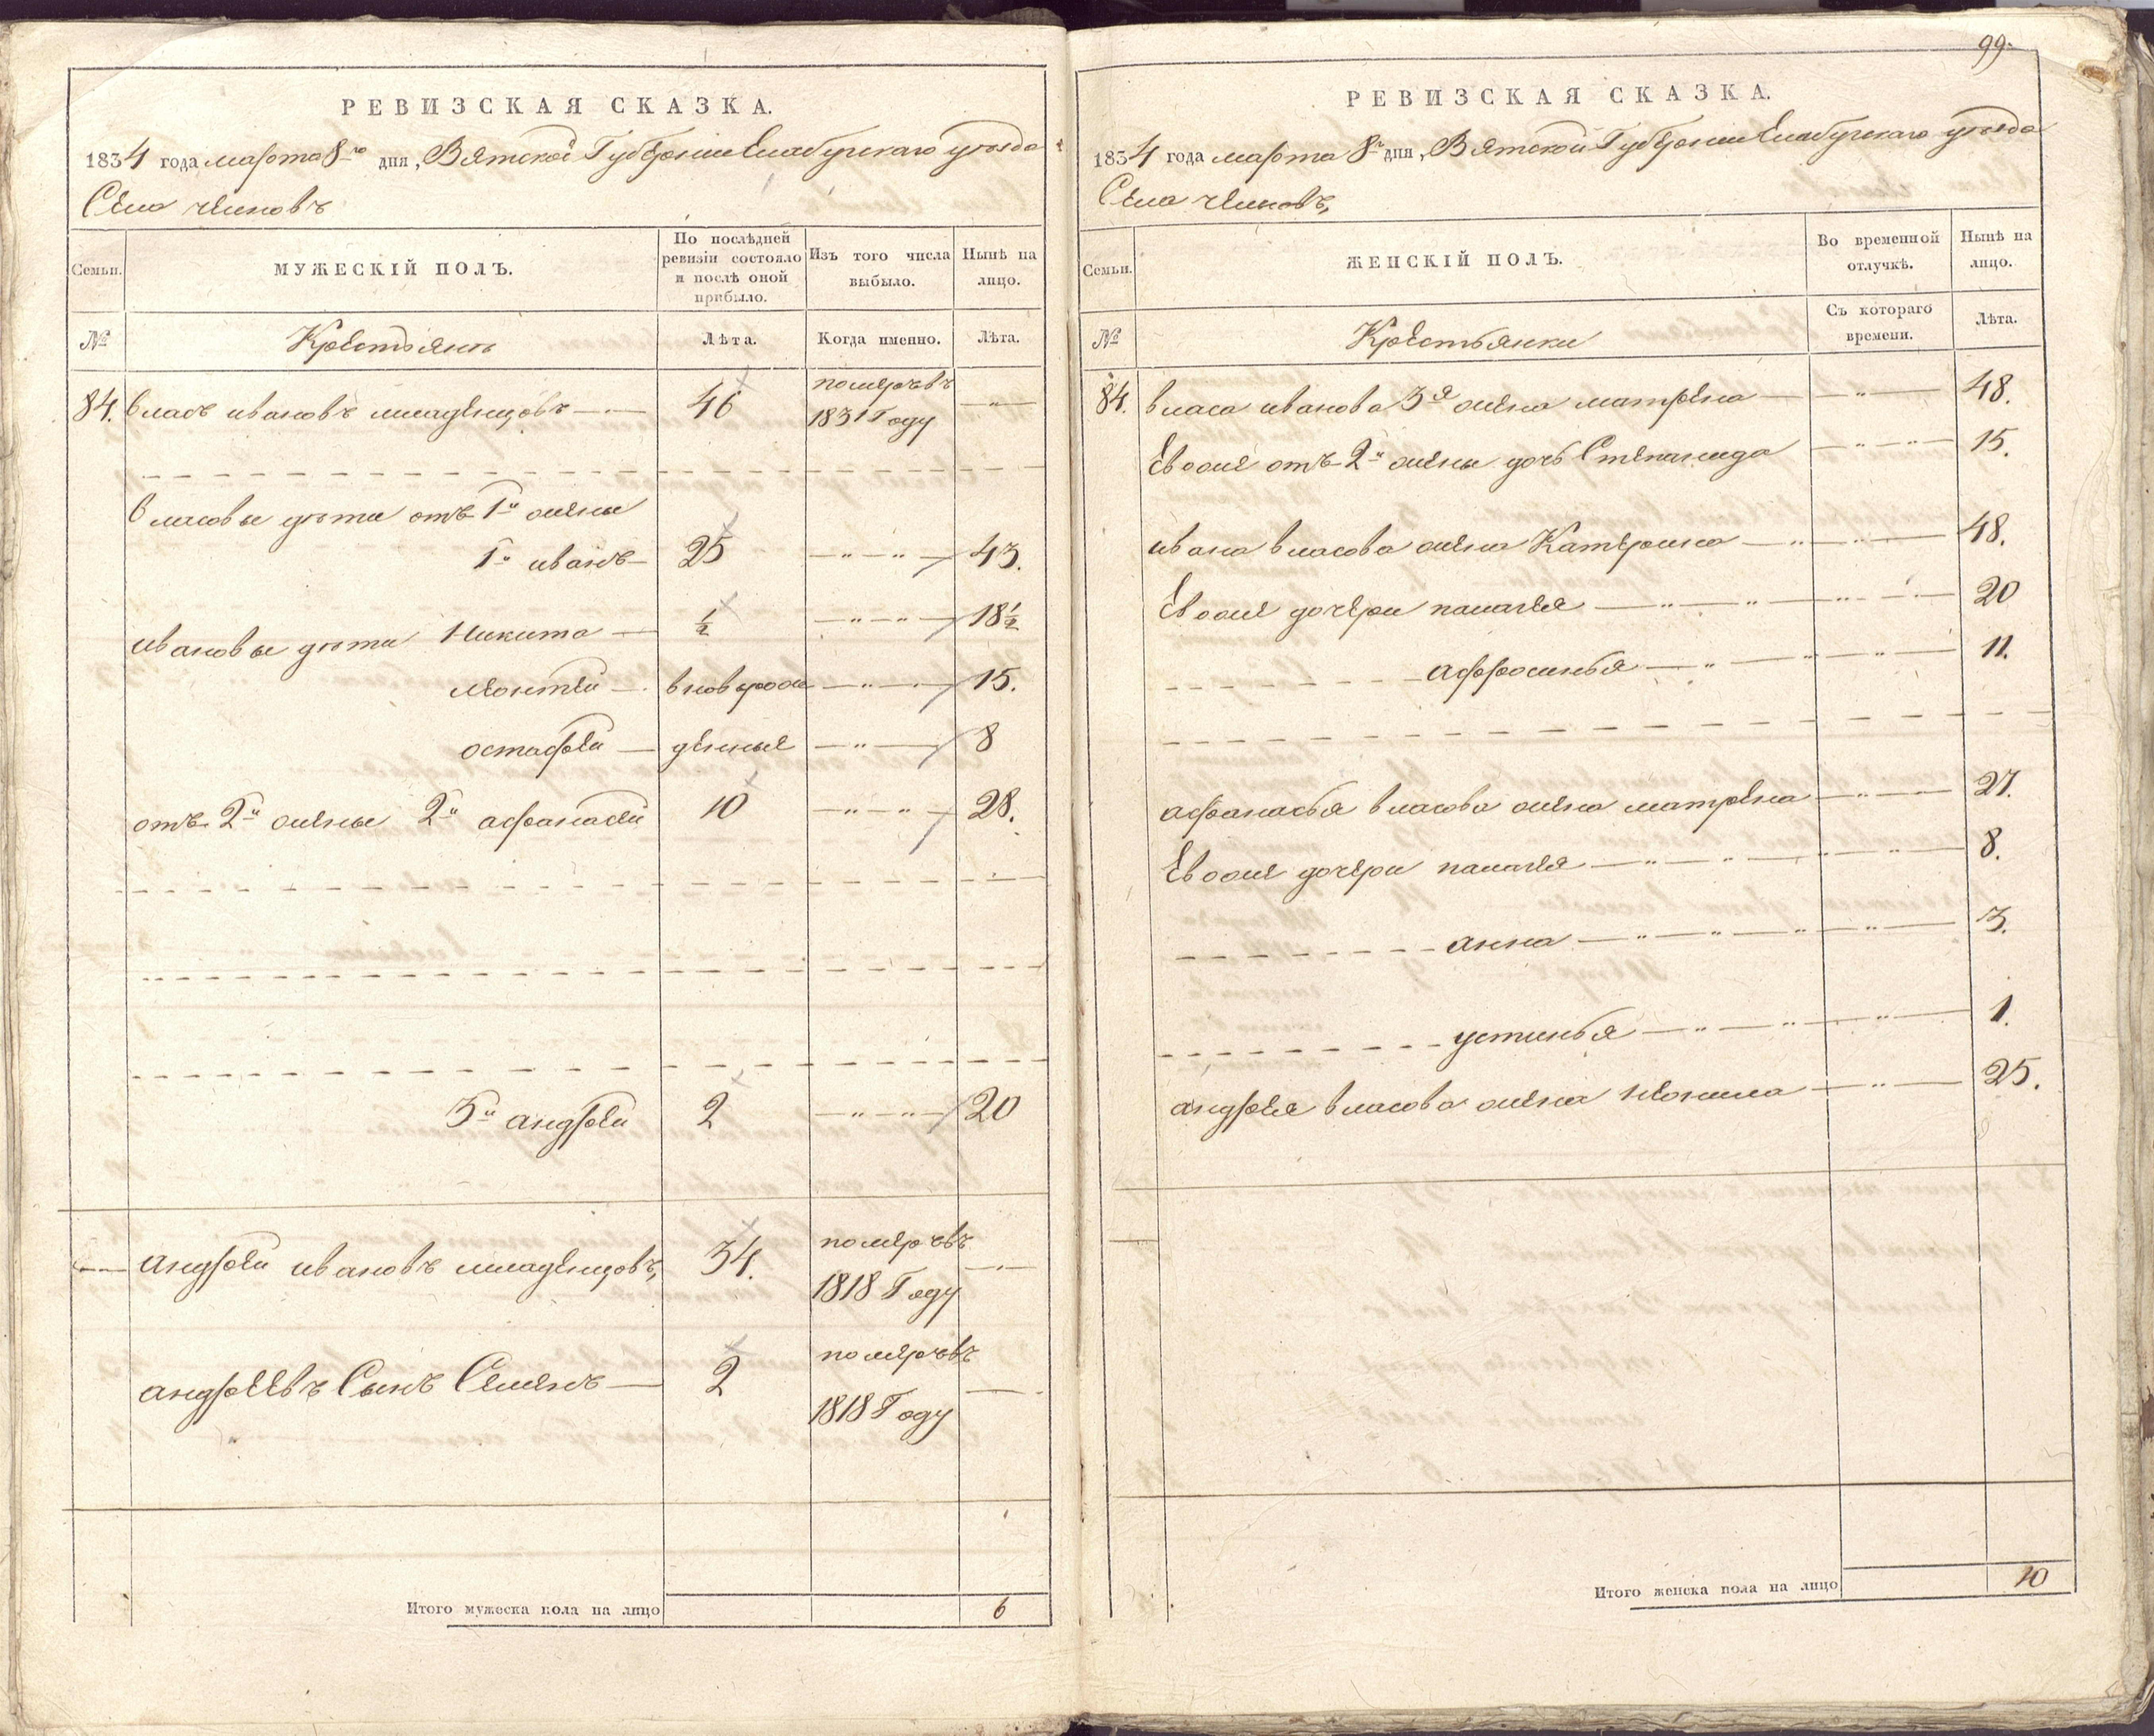 РЕВИЗСКАЯ СКАЗКА.
1834 года марта 8го дня, Вятской Губернии Елабугскаго уѣзда
Села челновъ
Семьи.
МУЖЕСКІЙ ПОЛЪ.
По послѣдней ревизіи состояло и послѣ оной прибыло.
Изъ того числа выбыло.
Нынѣ на лицо.
№
Крестьянъ
Лѣта.
Когда именно.
Лѣта.
84. власъ ивановъ младенцовъ 46 померъ въ 1831 Году
власовы дѣти отъ 1й жены
1й иванъ 25 43.
ивановы дѣти Никита ½ 18½
леонтей вновь рож 15.
остафей денные 8
отъ 2й жены 2й афанасей 10 28.
3й андрей 2 20
андрей ивановъ младенцовъ, 34. померъ въ 1818 Году
андреевъ Сынъ Семенъ 2 померъ въ 1818 Году
Итого мужеска пола на лицо 6
99.
РЕВИЗСКАЯ СКАЗКА.
1834 года марта 8го дня, Вятской Губернии Елабугскаго уѣзда
Села челновъ,
Семьи.
ЖЕНСКІЙ ПОЛЪ.
Во временной отлучкѣ.
Нынѣ на лицо.
№
Крестьянки
Съ котораго времени.
Лѣта.
84. власа иванова 3я жена матрена 48.
Ево же отъ 2й жены дочь Степанида 15.
ивана власова жена Катерина 48.
Ево же дочери палагея 20
афросинья 11.
афанасья власова жена матрена 27.
Ево же дочери палагея 8.
анна 3.
устинья 1.
андрея власова жена неонила 25.
Итого женска пола на лицо 10